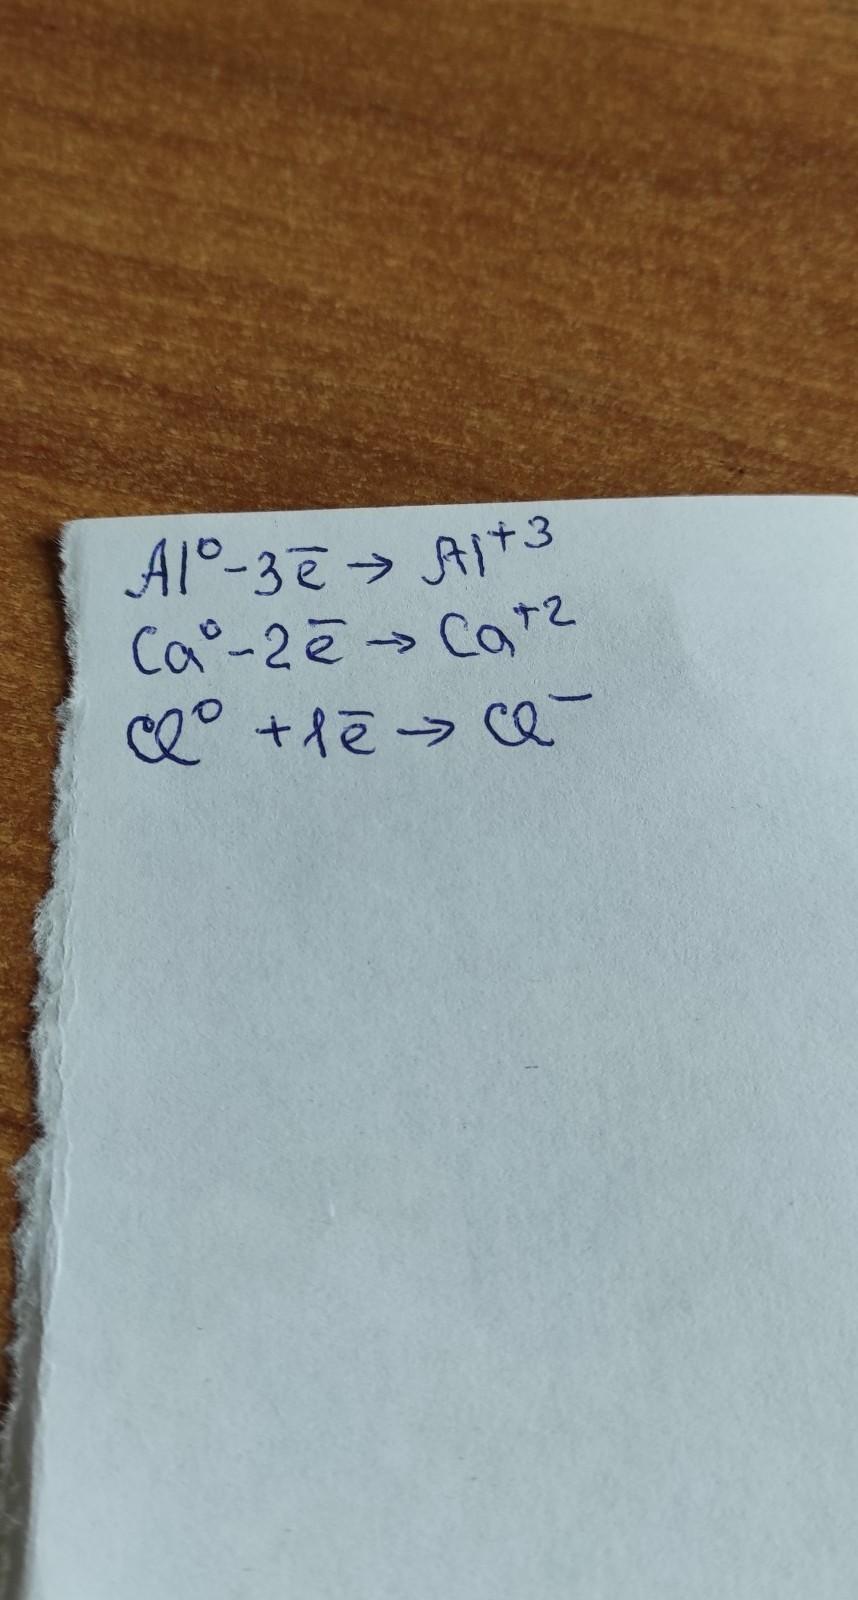 Al⁰ - 3ē → Al⁺³
Ca⁰ - 2ē → Ca⁺²
Cl⁰ + 1ē → Cl⁻